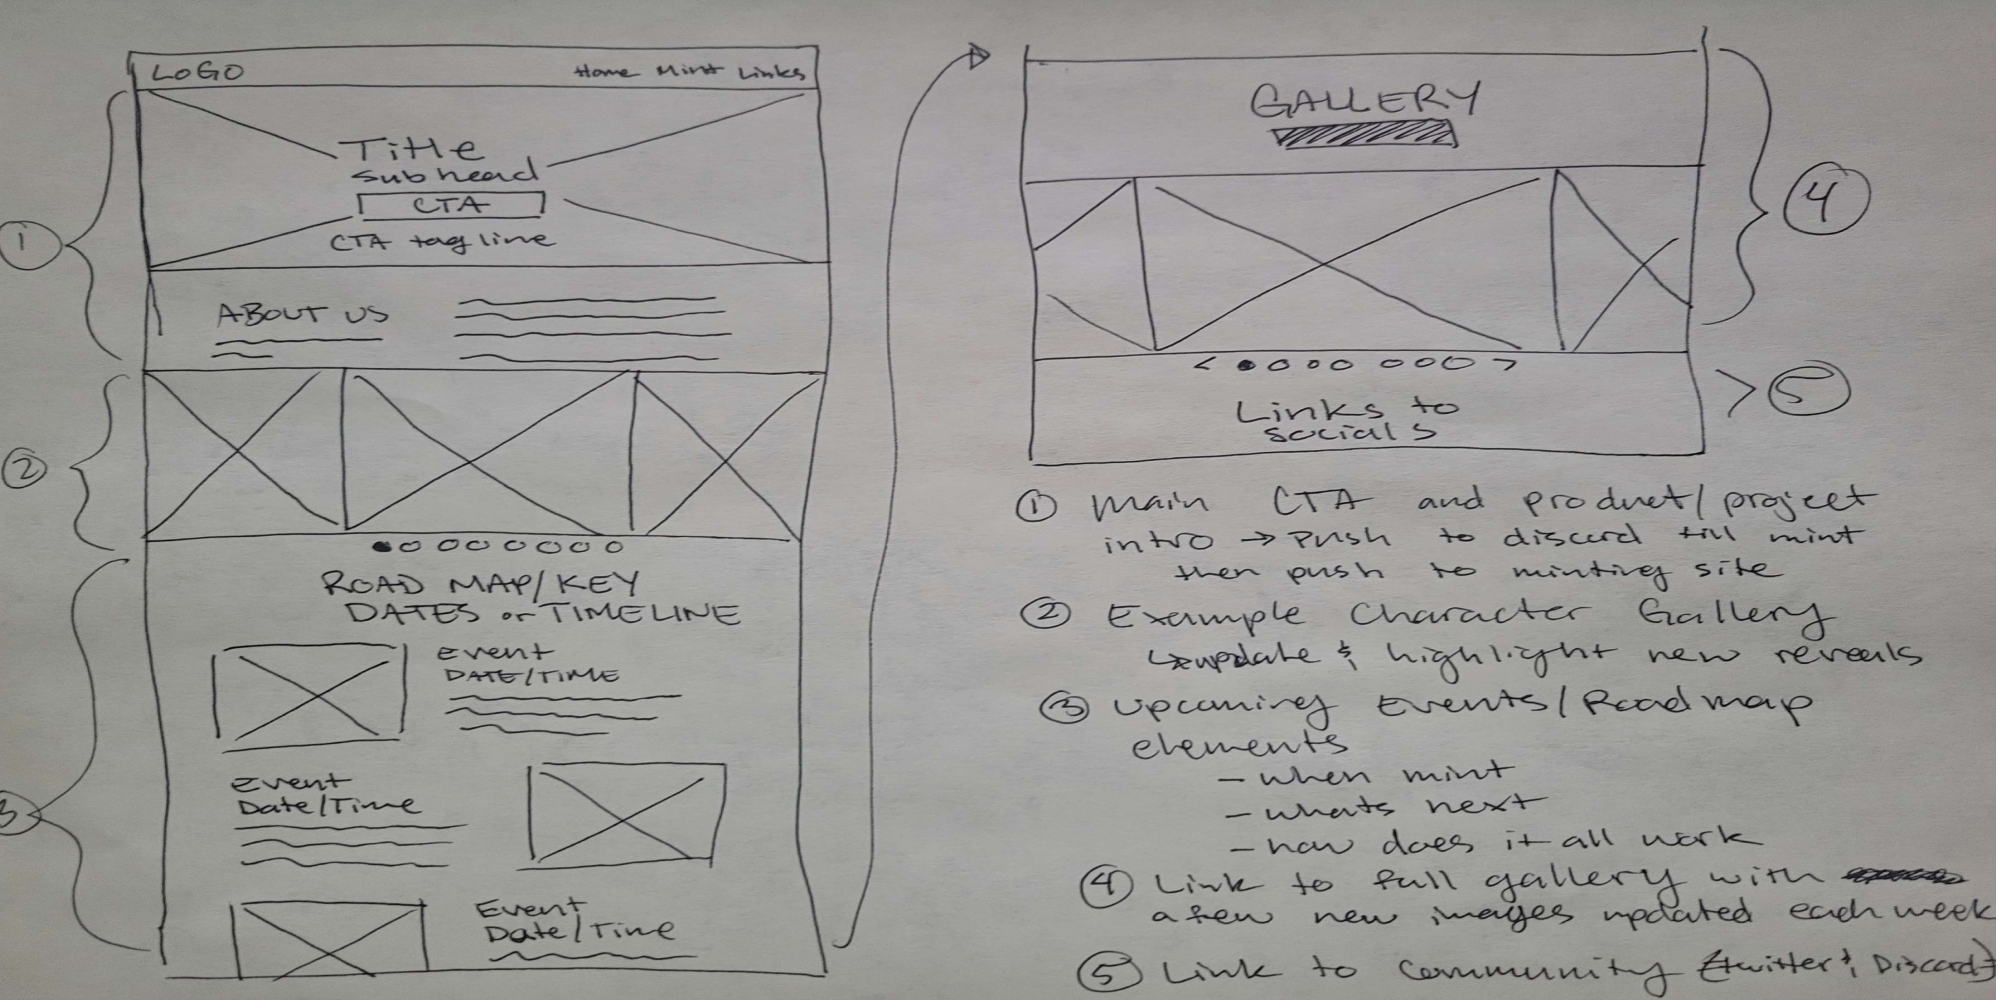 LOGO
Home Mint Links
Title
subhead
CTA
CTA tag line
1
ABOUT US
2
ROAD MAP/KEY
DATES or TIMELINE
Event
DATE/TIME
Event
Date/Time
3
Event
Date/Time
GALLERY
4
< >
Links to
socials
> 5
1 Main CTA and product/project
intro → Push to discord till mint
then push to minting site
2 Example Character Gallery
↳ update & highlight new reveals
3 Upcoming Events/Roadmap
elements
- when mint
- whats next
- how does it all work
4 Link to full gallery with
a few new images updated each week
5 Link to community (twitter & Discord)